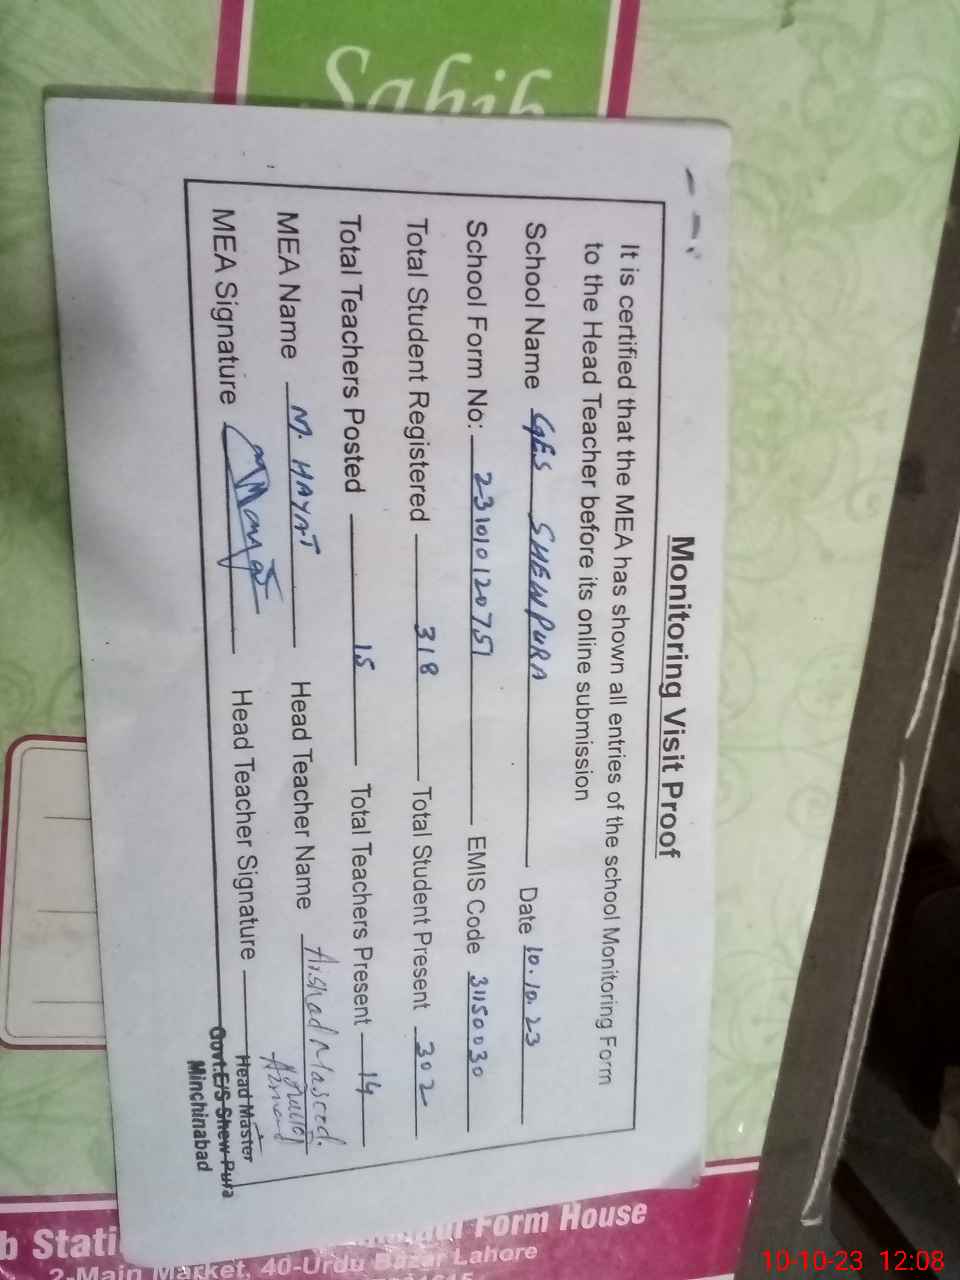 Sahib
Monitoring Visit Proof
It is certified that the MEA has shown all entries of the school Monitoring Form
to the Head Teacher before its online submission
School Name GES SHEWPURA Date 10.10.23
School Form No: 23101012075 EMIS Code 31150030
Total Student Registered 318 Total Student Present 302
Total Teachers Posted 15 Total Teachers Present 14
MEA Name M. HAYAT Head Teacher Name Arshad Masood.
MEA Signature Head Teacher Signature
Head Master
Govt.E/S Shew Pura
Minchinabad
Form House
2-Main Market, 40-Urdu Bazar Lahore
10-10-23 12:08